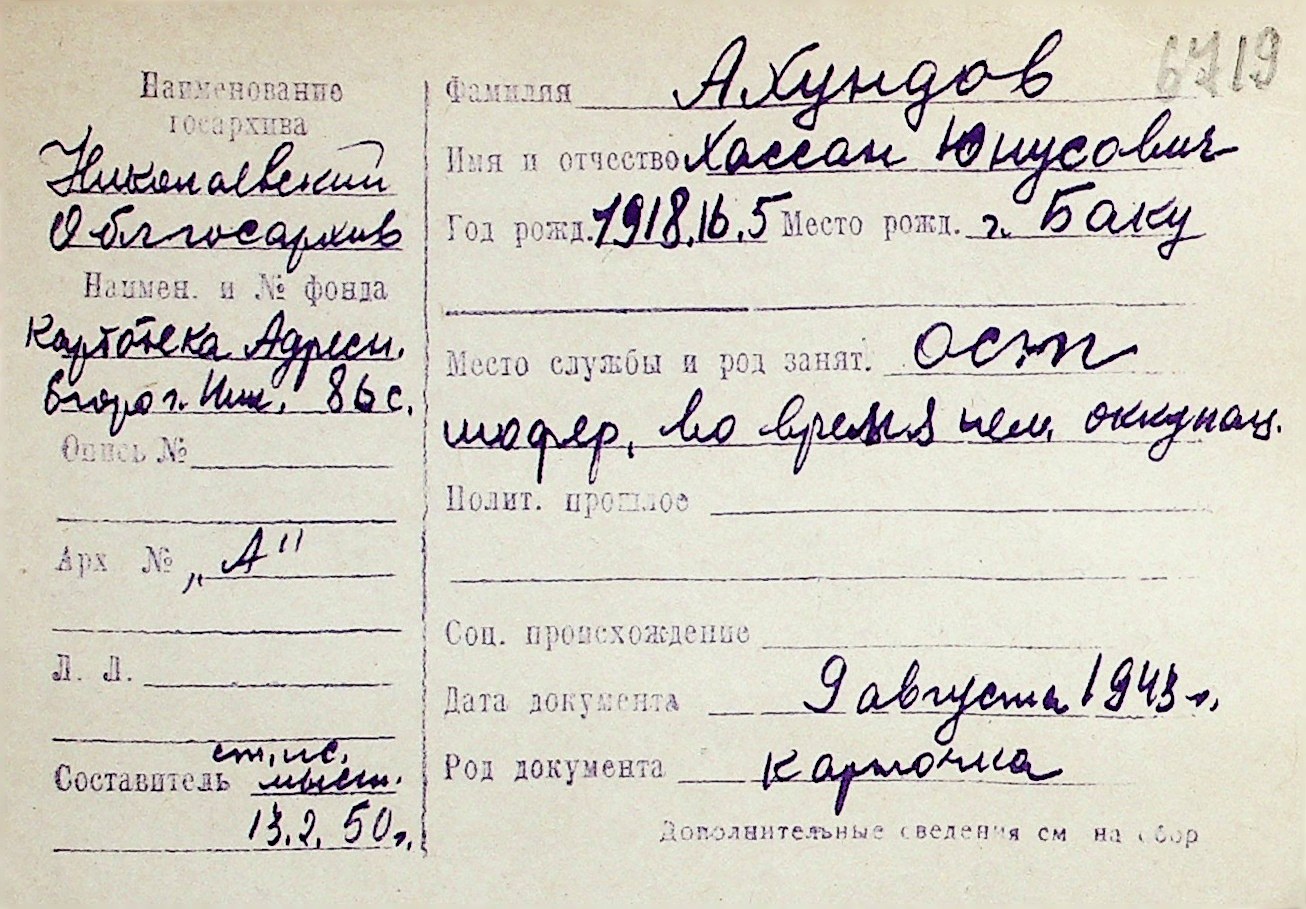 6719
Наименование
госархива
Николаевский
Облгосархив
Наимен. и № фонда
Картотека Адресн.
бюро г. Ник. 86 с.
Опись №
Арх № „А"
Л. Л.
ст. н.с.
Составитель
13.2.50 г.
Фамилия Ахундов
Имя и отчество Хассан Юнусович
Год рожд. 1918.16.5 Место рожд. г. Баку
Место службы и род занят.
шофер, во время нем. оккупац.
Полит. прошлое
Соц. происхождение
Дата документа 9 августа 1943 г.
Род документа карточка
Дополнительные сведения см на обор